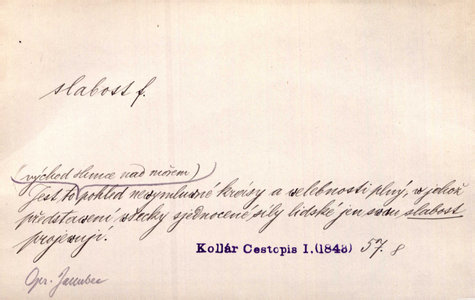 slabost f.
(východ slunce nad mořem)
Jest to pohled nevýmluvné krásy a velebnosti plný, v jehož
představení všecky sjednocené síly lidské jen svou slabost
projevují.
Kollár Cestopis I.(1843) 57. 8
Opr. Janubec